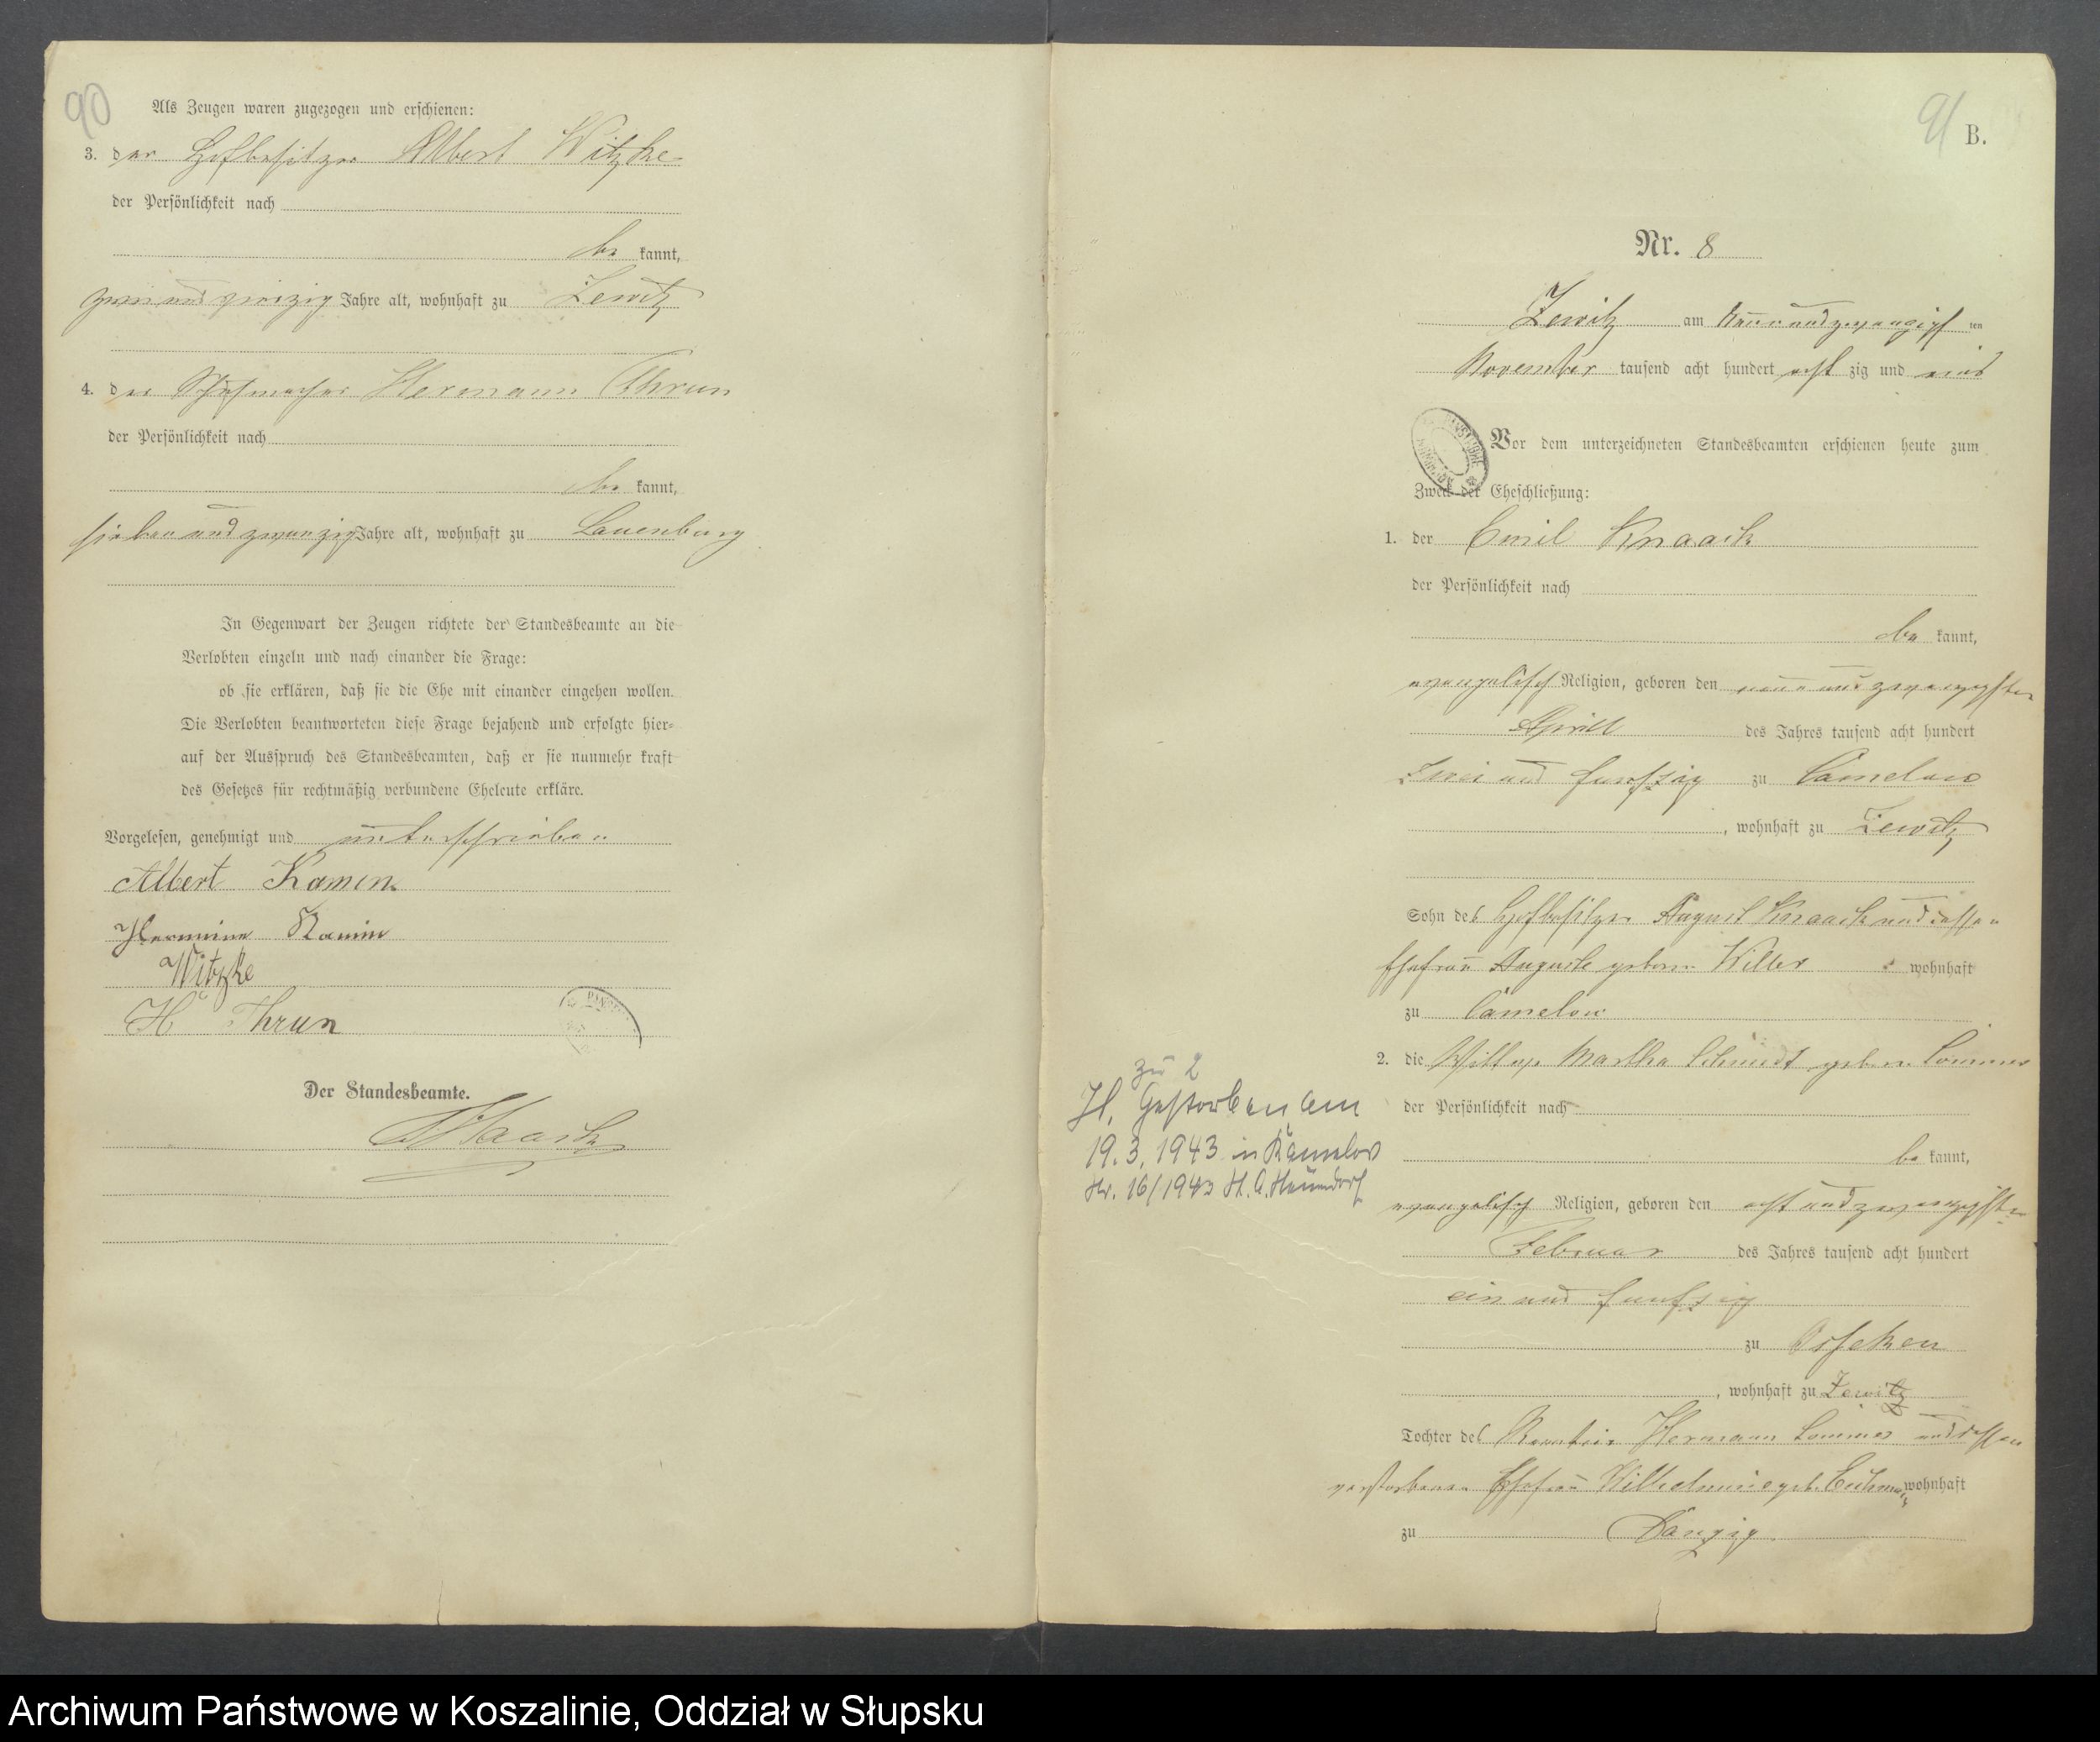 90
Als Zeugen waren zugezogen und erschienen:
3. der Hofbesitzer Albert Witzke
der Persönlichkeit nach
be kannt,
zwei und vierzig Jahre alt, wohnhaft zu Zewitz
4. der Schuhmacher Hermann Thrun
der Persönlichkeit nach
be kannt,
sieben und zwanzig Jahre alt, wohnhaft zu Lauenburg
In Gegenwart der Zeugen richtete der Standesbeamte an die
Verlobten einzeln und nach einander die Frage:
ob sie erklären, daß sie die Ehe mit einander eingehen wollen.
Die Verlobten beantworteten diese Frage bejahend und erfolgte hier-
auf der Ausspruch des Standesbeamten, daß er sie nunmehr kraft
des Gesetzes für rechtmäßig verbundene Eheleute erkläre.
Vorgelesen, genehmigt und unterschrieben
Albert Kamin
Hermine Kamin
Witzke
H Thrun
Der Standesbeamte.
91
B.
Nr. 8
Zewitz am neun und zwanzigst ten
November tausend acht hundert acht zig und eins
Vor dem unterzeichneten Standesbeamten erschienen heute zum
Zweck der Eheschließung:
1. der Emil Knaack
der Persönlichkeit nach
be kannt,
evangelisch Religion, geboren den neun und zwanzigsten
Aprill des Jahres tausend acht hundert
zwei und funfzig zu Camelow
, wohnhaft zu Zewitz
Sohn des Hofbesitzer August Knaack und dessen
Ehefrau Auguste geborne Willer wohnhaft
zu Camelow
2. die Wittwe Martha Schmidt geborne Sommer
der Persönlichkeit nach
be kannt,
evangelisch Religion, geboren den acht und zwanzigsten
Februar des Jahres tausend acht hundert
ein und funfzig
zu Ossecken
, wohnhaft zu Zewitz
Tochter des Rentier Hermann Sommer und dessen
verstorbenen Ehefrau Wilhelmine geb. wohnhaft
zu Danzig
zu 2
Gestorben am
19.3.1943 in Kamelow
Nr. 16/1943
Archiwum Państwowe w Koszalinie, Oddział w Słupsku